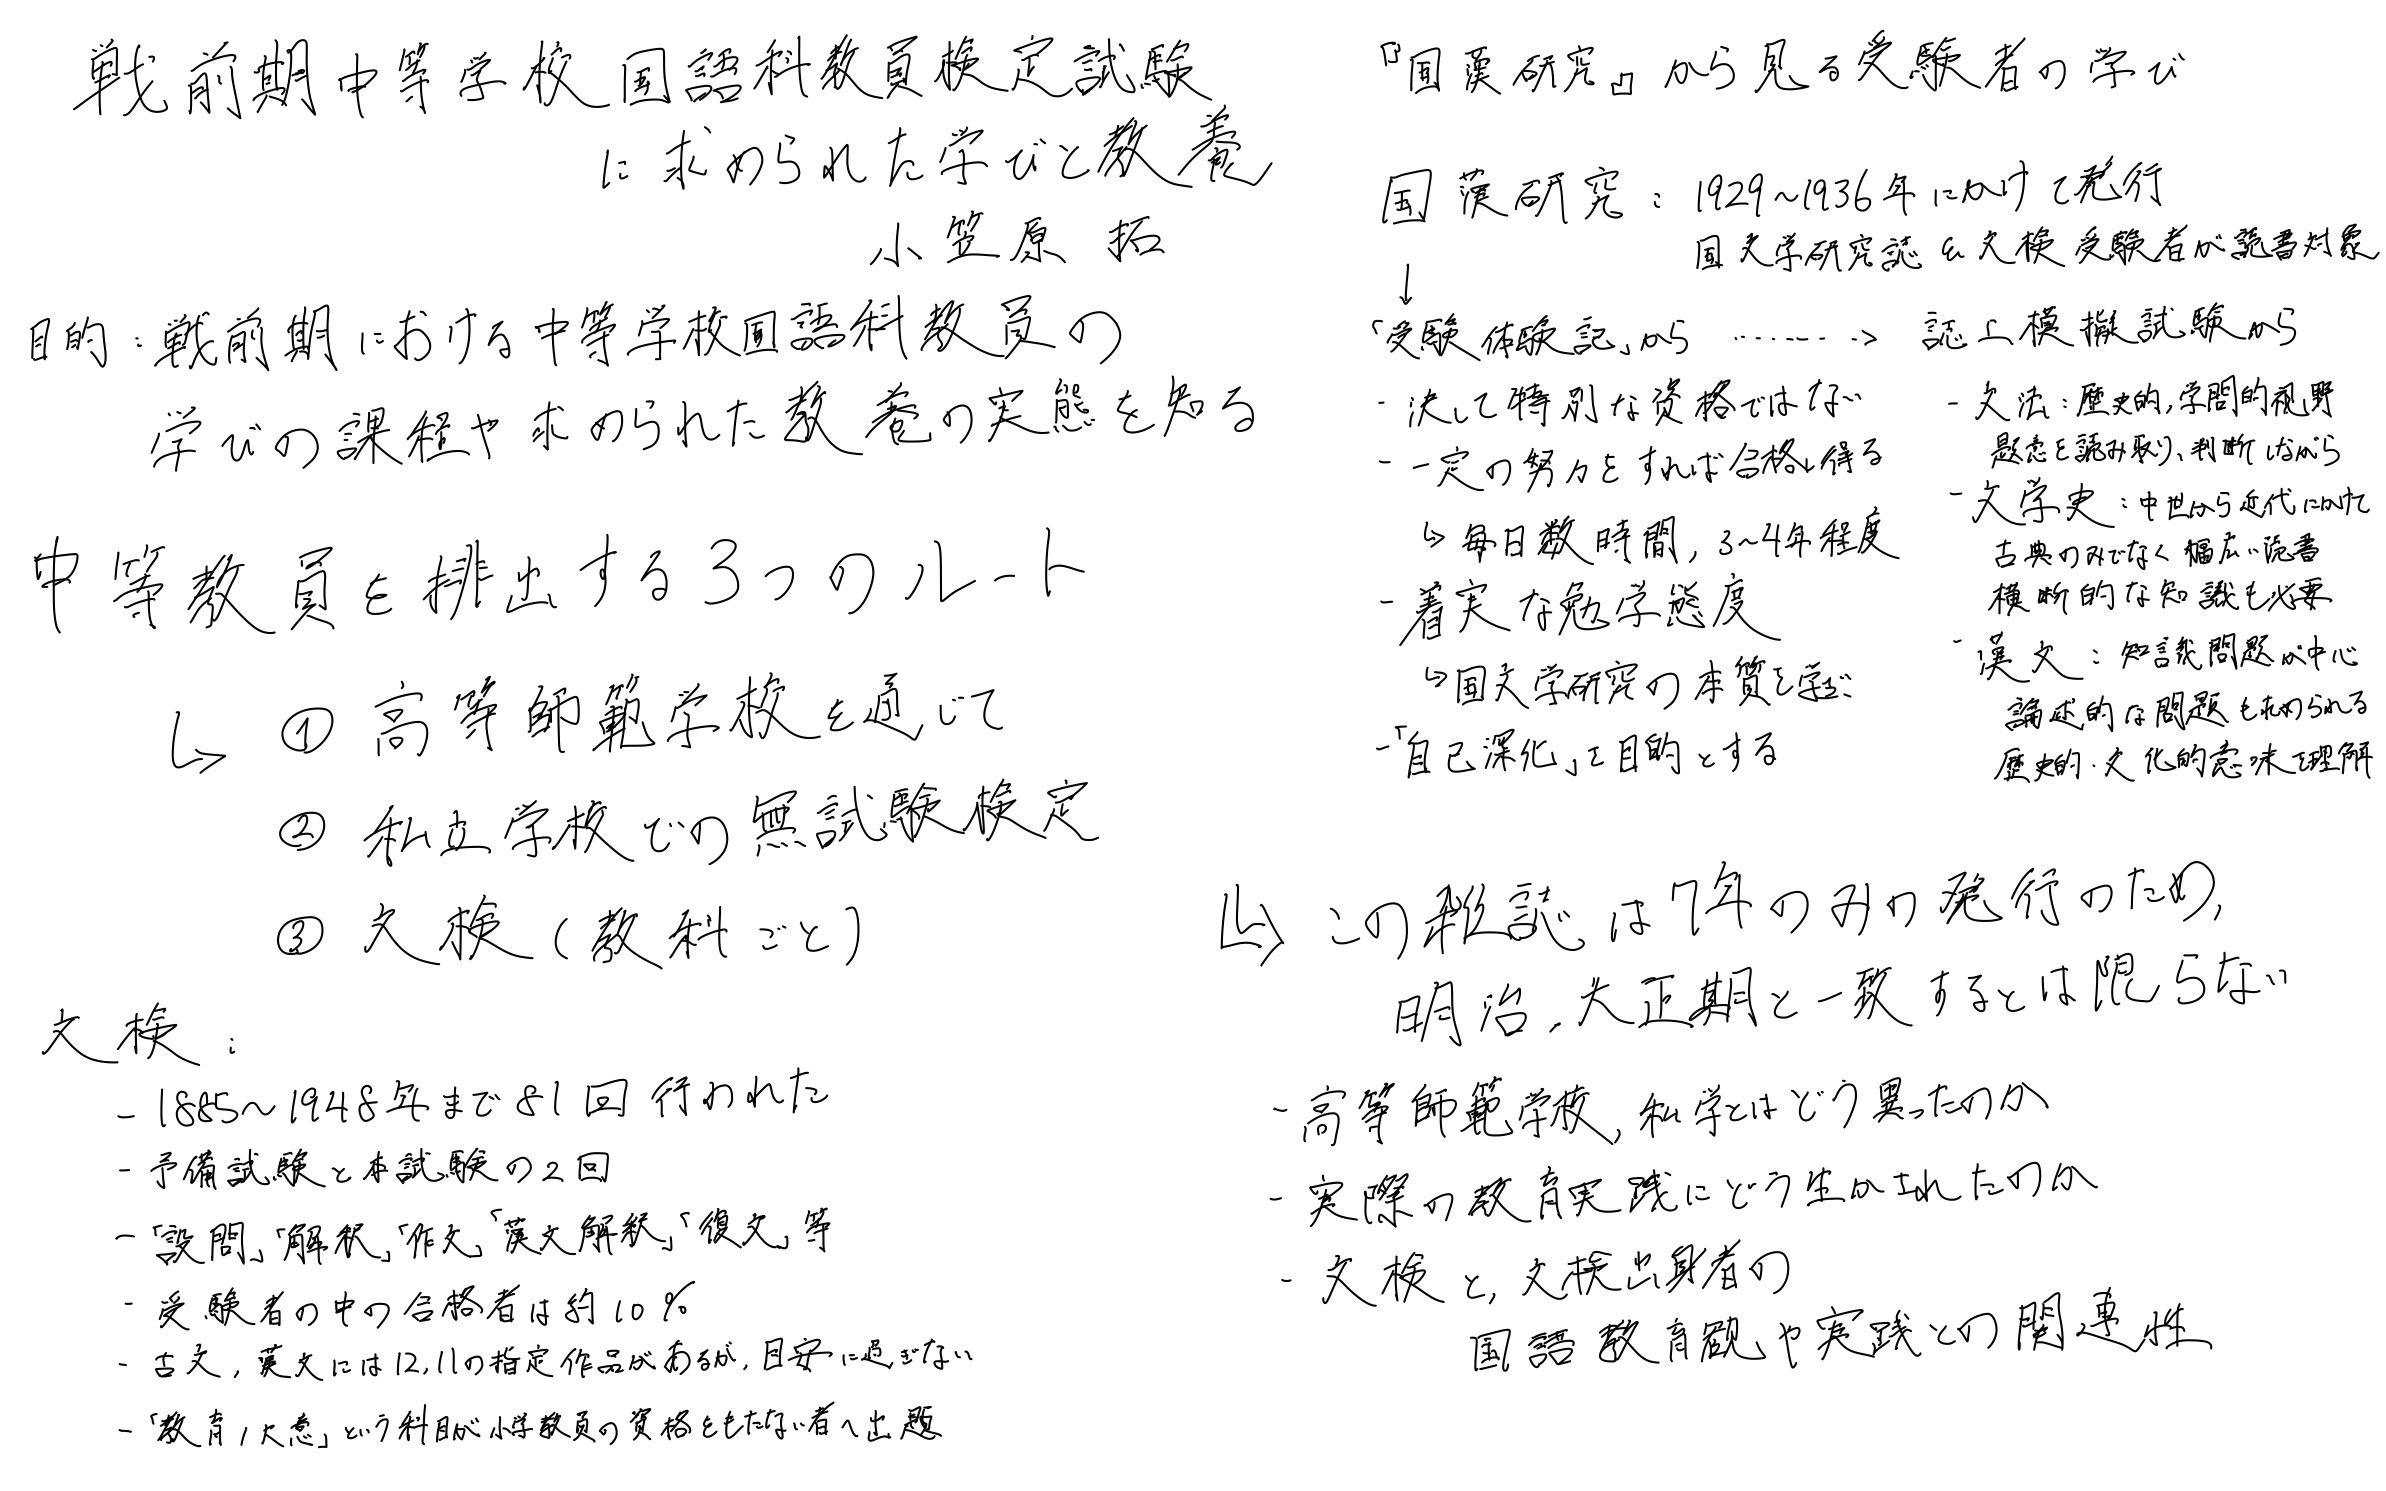 戦前期中等学校国語科教員検定試験
に求められた学びと教養
小笠原 拓
目的：戦前期における中等学校国語科教員の
学びの課程や求められた教養の実態を知る
中等教員を排出する3つのルート
↳ ① 高等師範学校を通じて
② 私立学校での無試験検定
③ 文検（教科ごと）
文検：
- 1885～1948年まで81回行われた
- 予備試験と本試験の2回
- 「設問」「解釈」「作文」「漢文解釈」「復文」等
- 受験者の中の合格者は約10%
- 古文，漢文には12,11の指定作品があるが，目安に過ぎない
- 「教育ノ大意」という科目が小学教員の資格をもたない者へ出題
『国漢研究』から見る受験者の学び
国漢研究：1929～1936年にかけて発行
国文学研究誌 & 文検受験者が読書対象
↓
「受験体験記」から ………→ 誌上模擬試験から
- 決して特別な資格ではない
- 一定の努力をすれば合格し得る
↳ 毎日数時間，3～4年程度
- 着実な勉学態度
↳ 国文学研究の本質を学ぶ
- 「自己深化」を目的とする
- 文法：歴史的，学問的視野
題意を読み取り、判断しながら
- 文学史：中世から近代にかけて
古典のみでなく幅広い読書
横断的な知識も必要
- 漢文：知識問題が中心
論述的な問題も求められる
歴史的・文化的意味を理解
↳ この雑誌は7年のみの発行のため，
明治，大正期と一致するとは限らない
- 高等師範学校，私学とはどう異ったのか
- 実際の教育実践にどう生かされたのか
- 文検と，文検出身者の
国語教育観や実践との関連性